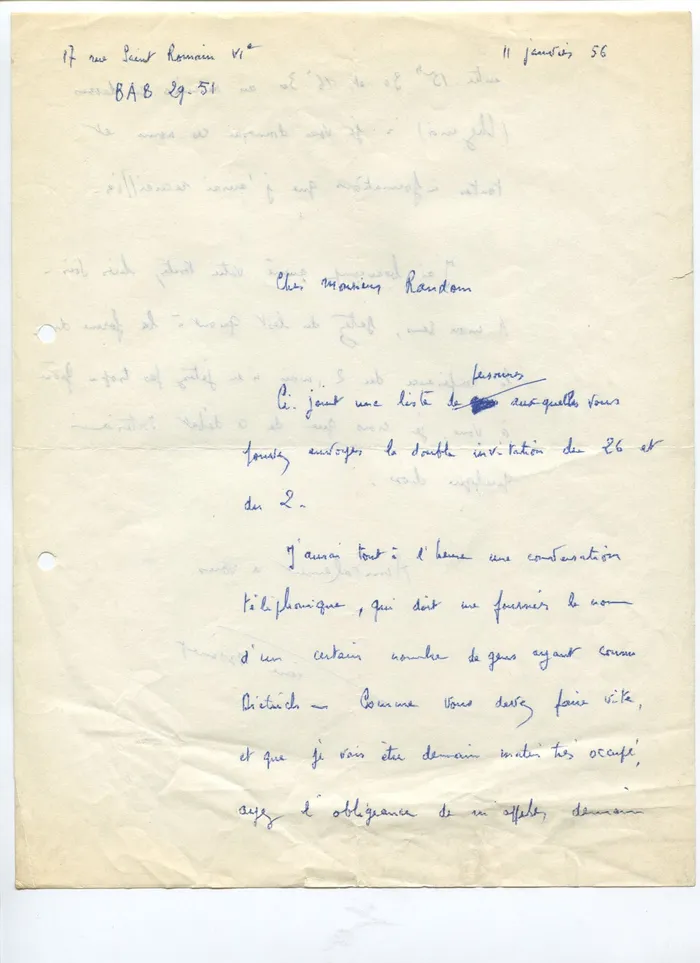 17 rue Saint Romain VIe
11 janvier 56
BAB 29-51
Cher Monsieur Random
personnes
Ci-joint une liste de auxquelles vous
pouvez envoyer la double invitation du 26 et
du 2.
J'aurai tout à l'heure une conversation
téléphonique, qui doit me fournir le nom
d'un certain nombre de gens ayant connu
Dietrich - Comme vous devez faire vite,
et que je vais être demain matin très occupé,
ayez l'obligeance de m'appeler, demain